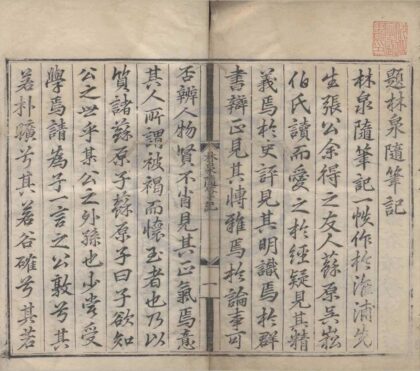 題林泉隨筆記
林泉隨筆記一帙作於瀫浦先
生張公余得之友人蘇原吳崧
伯氏讀而愛之於經疑見其精
義焉於史評見其明識焉於群
書辯正見其博雅焉於論事可
否辨人物賢不肖見其正氣焉意
其人所謂被褐而懷玉者也乃以
質諸蘇原子蘇原子曰子欲知
公之世乎某公之外孫也少嘗受
學焉請為子一言之公敦兮其
若朴曠兮其若谷確兮其若
一